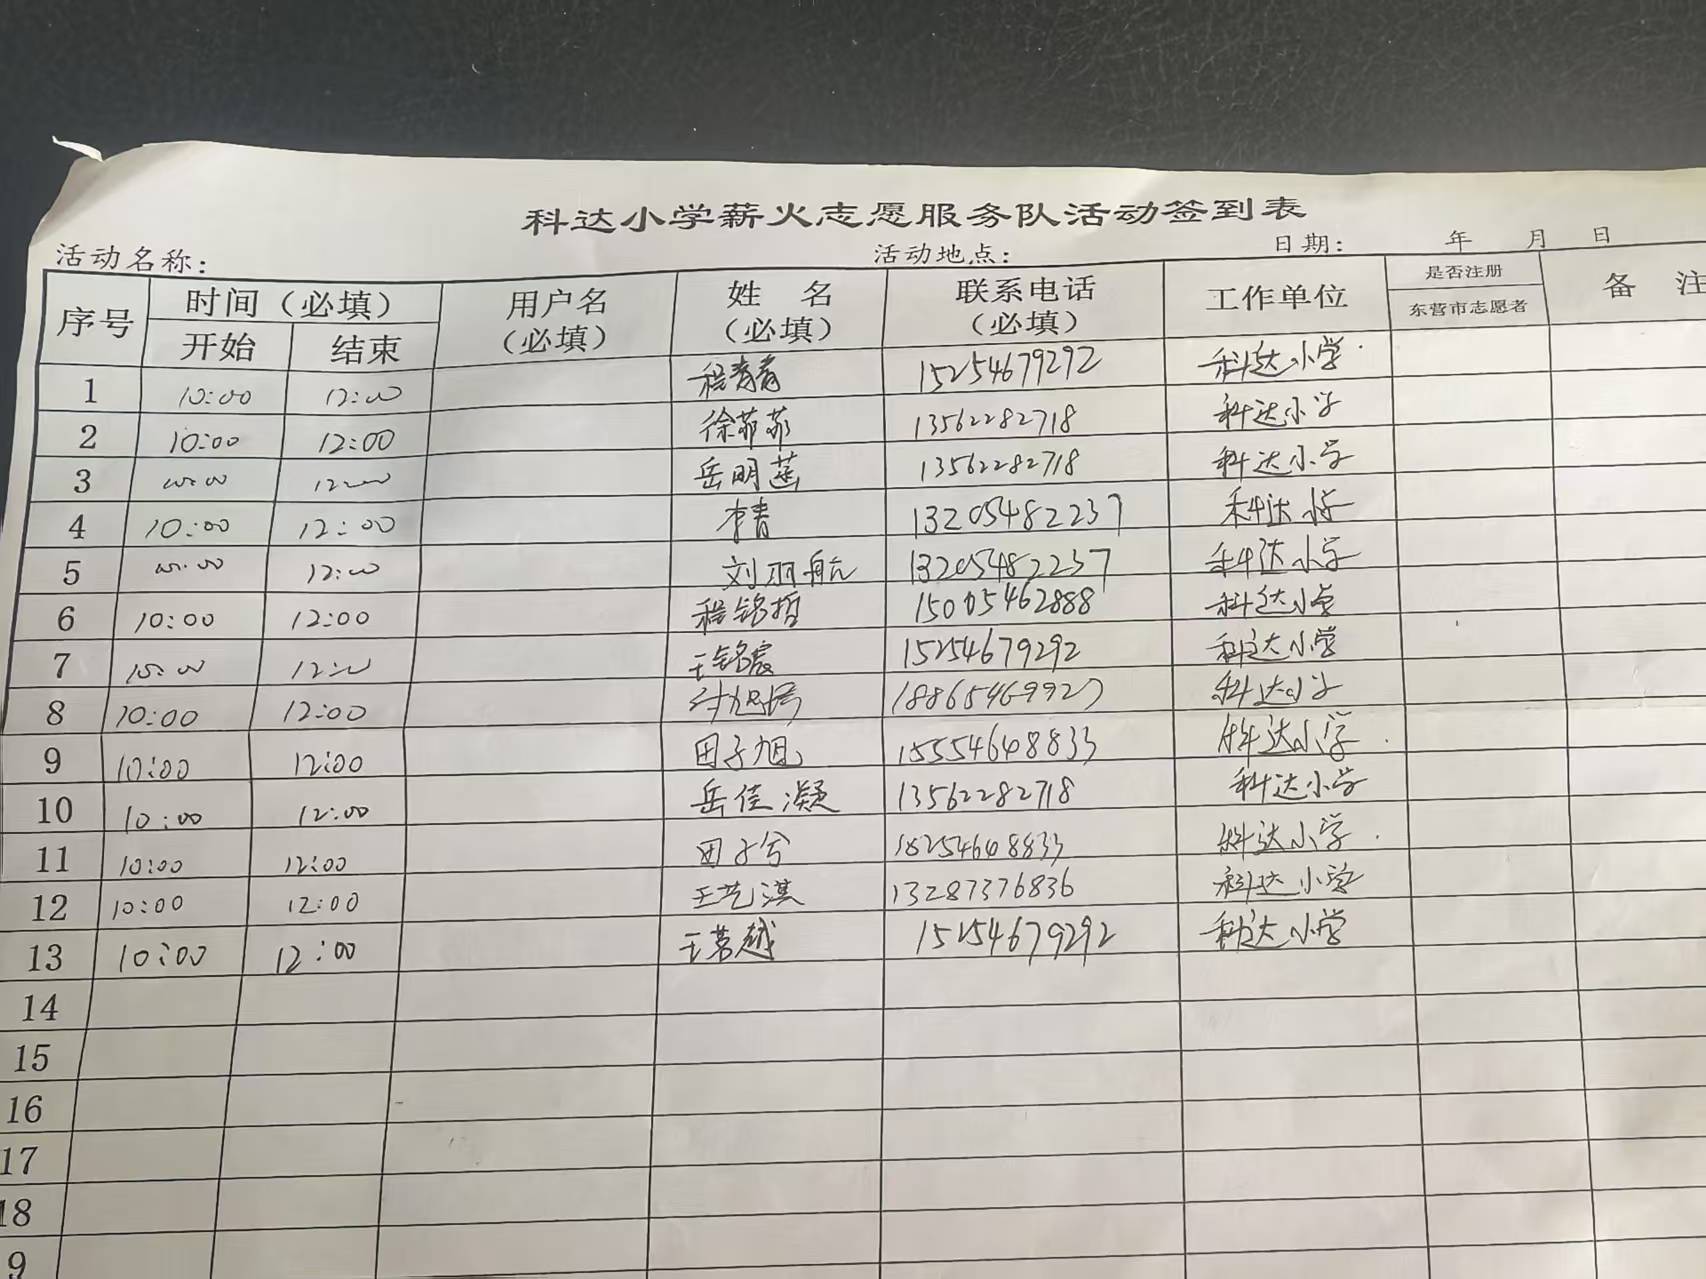 科达小学薪火志愿服务队活动签到表
活动名称： 活动地点： 日期： 年 月 日
序号 时间（必填） 用户名（必填） 姓 名（必填） 联系电话（必填） 工作单位 是否注册 东营市志愿者 备 注
开始 结束
1 10:00 12:00 程青青 15254679292 科达小学
2 10:00 12:00 徐菲菲 13562282718 科达小学
3 10:00 12:00 岳明莲 13562282718 科达小学
4 10:00 12:00 李青 13205482237 科达小学
5 10:00 12:00 刘羽航 13205482237 科达小学
6 10:00 12:00 程铭哲 15005462888 科达小学
7 10:00 12:00 王铭宸 15254679292 科达小学
8 10:00 12:00 18865469927 科达小学
9 10:00 12:00 田子旭 15554648833 科达小学
10 10:00 12:00 岳佳凝 13562282718 科达小学
11 10:00 12:00 田子兮 科达小学
12 10:00 12:00 王艺淇 13287376836 科达小学
13 10:00 12:00 王茗越 15254679292 科达小学
14
15
16
17
18
9